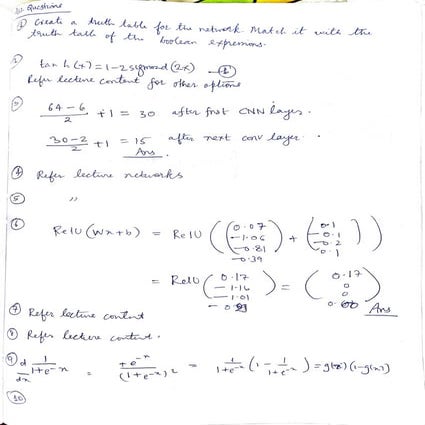 Questions
① Create a truth table for the network. Match it with the
truth table of the boolean expressions.
② tan h(x) = 1 - 2 sigmoid (2x) —
Refer lecture content for other options
③ 64 - 6 / 2 + 1 = 30 after first CNN layer.
30 - 2 / 2 + 1 = 15 after next conv layer.
Ans.
④ Refer lecture networks
⑤ "
⑥ RelU (Wx + b) = RelU ( ( 0.07 -1.06 -0.81 -0.39 ) + ( 0.1 -0.1 -0.2 0.1 ) )
= RelU ( 0.17 -1.16 -1.01 ) = ( 0.17 0 0 ) Ans
⑦ Refer lecture content
⑧ Refer lecture content.
⑨ d/dx 1 / 1+e^-x = + e^-x / (1+e^-x)2 = 1 / 1+e^-x ( 1 - 1 / 1+e^-x ) = g(x) (1-g(x))
⑩